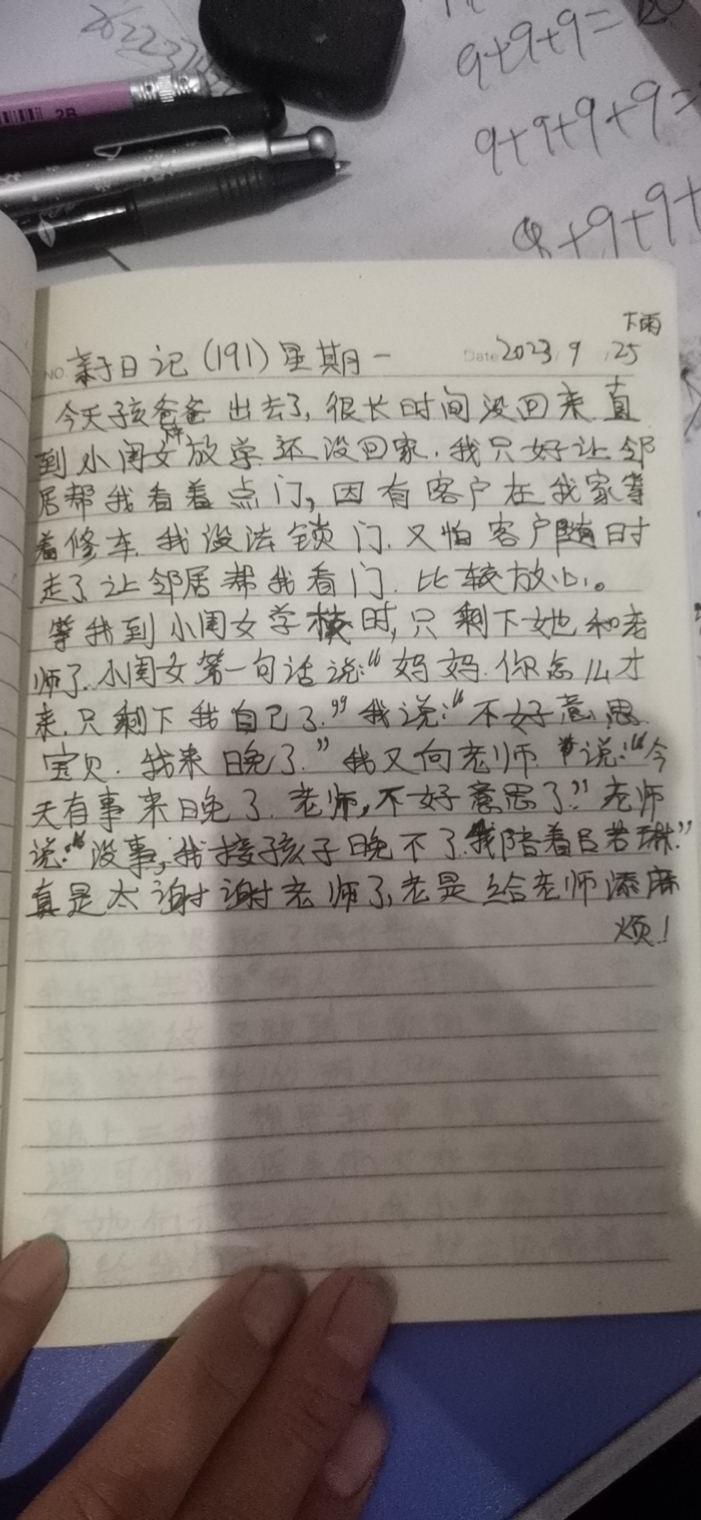 2B
9+9+9=
9+9+9+9=
9+9+
下雨
NO. 亲子日记(191)星期一 Date 2023 / 9 / 25
今天孩爸爸出去了,很长时间没回来.直
到小闺女放学还没回家.我只好让邻
居帮我看着点门,因有客户在我家等
着修车.我没法锁门.又怕客户随时
走了让邻居帮我看门.比较放心。
等我到小闺女学校时,只剩下她和老
师了.小闺女第一句话说:“妈妈.你怎么才
来.只剩下我自己了.”我说:“不好意思.
宝贝.我来晚了.”我又向老师说:“今
天有事来晚了.老师,不好意思了!”老师
说:“没事,我接孩子晚不了.我陪着吕若琳.”
真是太谢谢老师了,老是给老师添麻
烦!